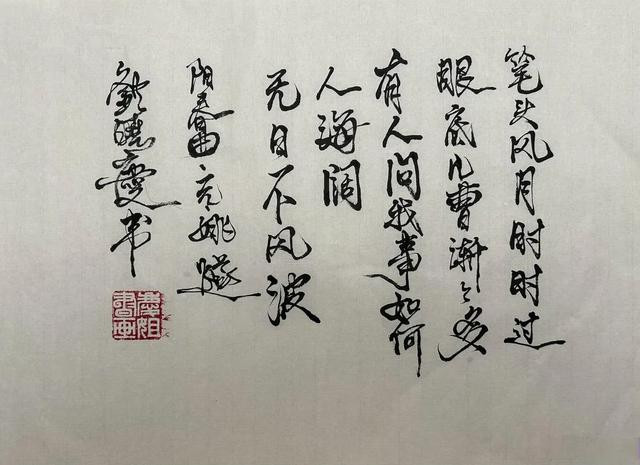 笔头风月时时过
眼底儿曹渐々多
有人问我事如何
人海阔
无日不风波
阳春曲·元姚燧
书